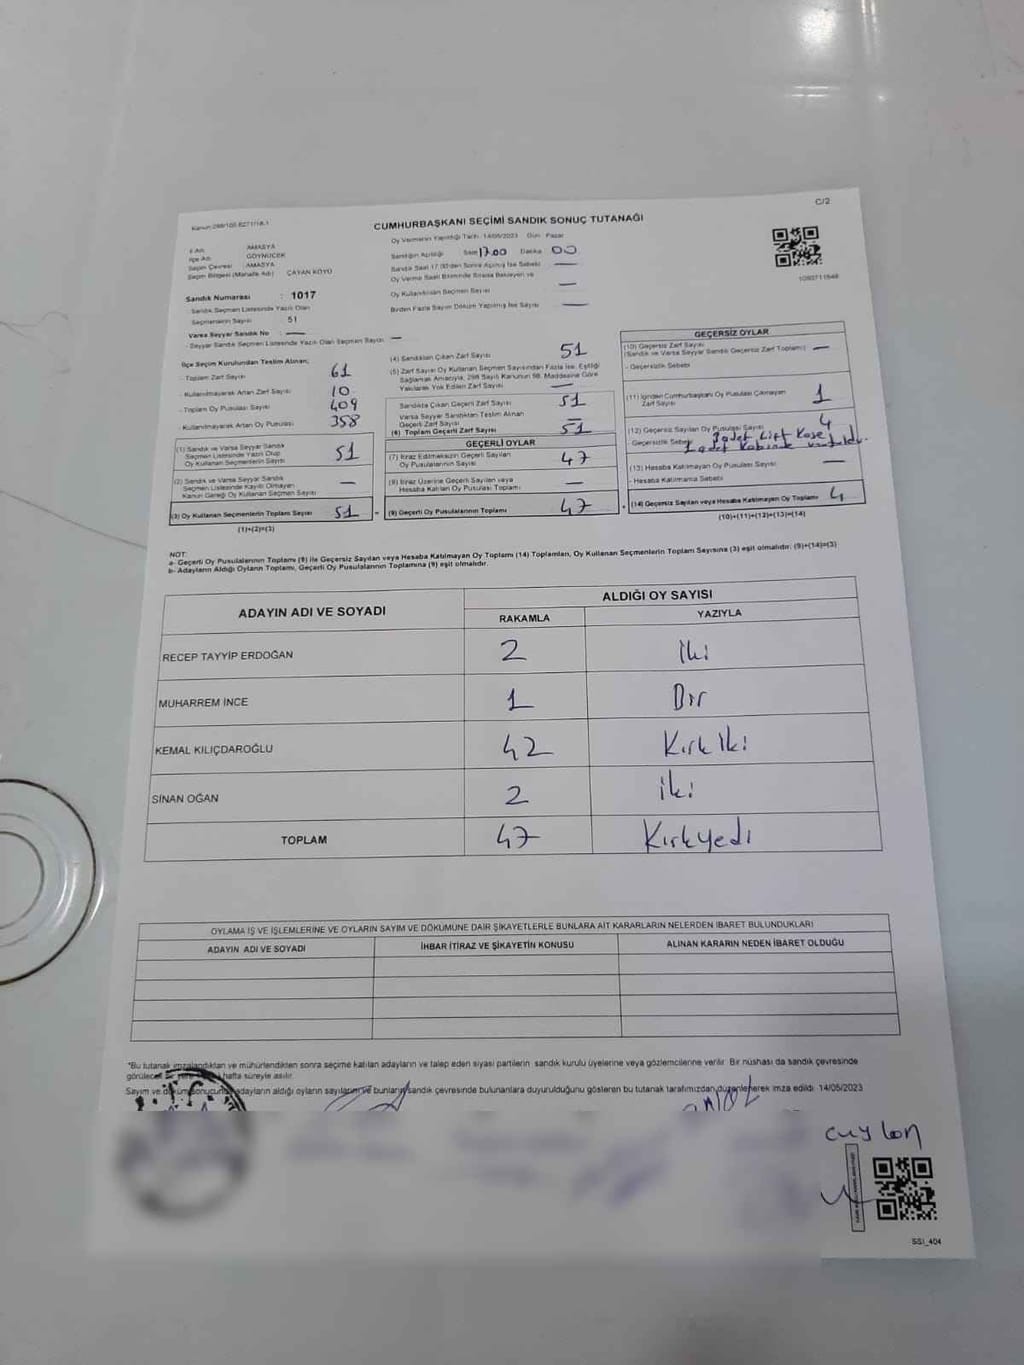 C/2
CUMHURBAŞKANI SEÇİMİ SANDIK SONUÇ TUTANAĞI
Oy Vermenin Yapıldığı Tarih 14/05/2023 Gün Pazar
İl Adı AMASYA
İlçe Adı GÖYNÜCEK
Seçim Çevresi AMASYA
Seçim Bölgesi (Mahalle Adı) ÇAYAN KÖYÜ
Sandık Numarası : 1017
Sandık Seçmen Listesinde Yazılı Olan
Seçmenlerin Sayısı 51
Varsa Seyyar Sandık No : —
- Seyyar Sandık Seçmen Listesinde Yazılı Olan Seçmen Sayısı —
Sandığın Açıldığı Saat 17.00 Dakika 00
Sandık Saat 17.00'den Sonra Açılmış İse Sebebi —
Oy Verme Saati Bitiminde Sırada Bekleyen ve
Oy Kullandırılan Seçmen Sayısı —
Birden Fazla Sayım Döküm Yapılmış İse Sayısı —
İlçe Seçim Kurulundan Teslim Alınan;
- Toplam Zarf Sayısı 61
- Kullanılmayarak Artan Zarf Sayısı 10
- Toplam Oy Pusulası Sayısı 409
- Kullanılmayarak Artan Oy Pusulası 358
(1) Sandık ve Varsa Seyyar Sandık
Seçmen Listesinde Yazılı Olup
Oy Kullanan Seçmenlerin Sayısı 51
(2) Sandık ve Varsa Seyyar Sandık
Seçmen Listesinde Kayıtlı Olmayan
Kanun Gereği Oy Kullanan Seçmen Sayısı —
(3) Oy Kullanan Seçmenlerin Toplam Sayısı 51
(1)+(2)=(3)
(4) Sandıktan Çıkan Zarf Sayısı 51
(5) Zarf Sayısı Oy Kullanan Seçmen Sayısından Fazla İse, Eşitliği
Sağlamak Amacıyla, 298 Sayılı Kanunun 98. Maddesine Göre
Yakılarak Yok Edilen Zarf Sayısı —
Sandıkta Çıkan Geçerli Zarf Sayısı 51
Varsa Seyyar Sandıktan Teslim Alınan
Geçerli Zarf Sayısı —
(6) Toplam Geçerli Zarf Sayısı 51
GEÇERLİ OYLAR
(7) İtiraz Edilmeksizin Geçerli Sayılan
Oy Pusulalarının Sayısı 47
(8) İtiraz Üzerine Geçerli Sayılan veya
Hesaba Katılan Oy Pusulaları Toplamı —
(9) Geçerli Oy Pusulalarının Toplamı 47
GEÇERSİZ OYLAR
(10) Geçersiz Zarf Sayısı
(Sandık ve Varsa Seyyar Sandık Geçersiz Zarf Toplamı) —
- Geçersizlik Sebebi
(11) İçinden Cumhurbaşkanı Oy Pusulası Çıkmayan
Zarf Sayısı 1
(12) Geçersiz Sayılan Oy Pusulası Sayısı 4
- Geçersizlik Sebebi
(13) Hesaba Katılmayan Oy Pusulası Sayısı —
- Hesaba Katılmama Sebebi
(14) Geçersiz Sayılan veya Hesaba Katılmayan Oy Toplamı 4
(10)+(11)+(12)+(13)=(14)
NOT:
a- Geçerli Oy Pusulalarının Toplamı (9) ile Geçersiz Sayılan veya Hesaba Katılmayan Oy Toplamı (14) Toplamları, Oy Kullanan Seçmenlerin Toplam Sayısına (3) eşit olmalıdır. (9)+(14)=(3)
b- Adayların Aldığı Oyların Toplamı, Geçerli Oy Pusulalarının Toplamına (9) eşit olmalıdır.
ADAYIN ADI VE SOYADI ALDIĞI OY SAYISI
RAKAMLA YAZIYLA
RECEP TAYYİP ERDOĞAN 2 iki
MUHARREM İNCE 1 Bir
KEMAL KILIÇDAROĞLU 42 Kırk iki
SİNAN OĞAN 2 iki
TOPLAM 47 Kırkyedi
OYLAMA İŞ VE İŞLEMLERİNE VE OYLARIN SAYIM VE DÖKÜMÜNE DAİR ŞİKAYETLERLE BUNLARA AİT KARARLARIN NELERDEN İBARET BULUNDUKLARI
ADAYIN ADI VE SOYADI İHBAR İTİRAZ VE ŞİKAYETİN KONUSU ALINAN KARARIN NEDEN İBARET OLDUĞU
*Bu tutanak imzalandıktan ve mühürlendikten sonra seçime katılan adayların ve talep eden siyasi partilerin sandık kurulu üyelerine veya gözlemcilerine verilir. Bir nüshası da sandık çevresinde
görülecek bir yere hafta süreyle asılır.
Sayım ve döküm sonucunda adayların aldığı oyların sayılarını ve bunların sandık çevresinde bulunanlara duyurulduğunu gösteren bu tutanak tarafımızdan düzenlenerek imza edildi. 14/05/2023
SSİ_404